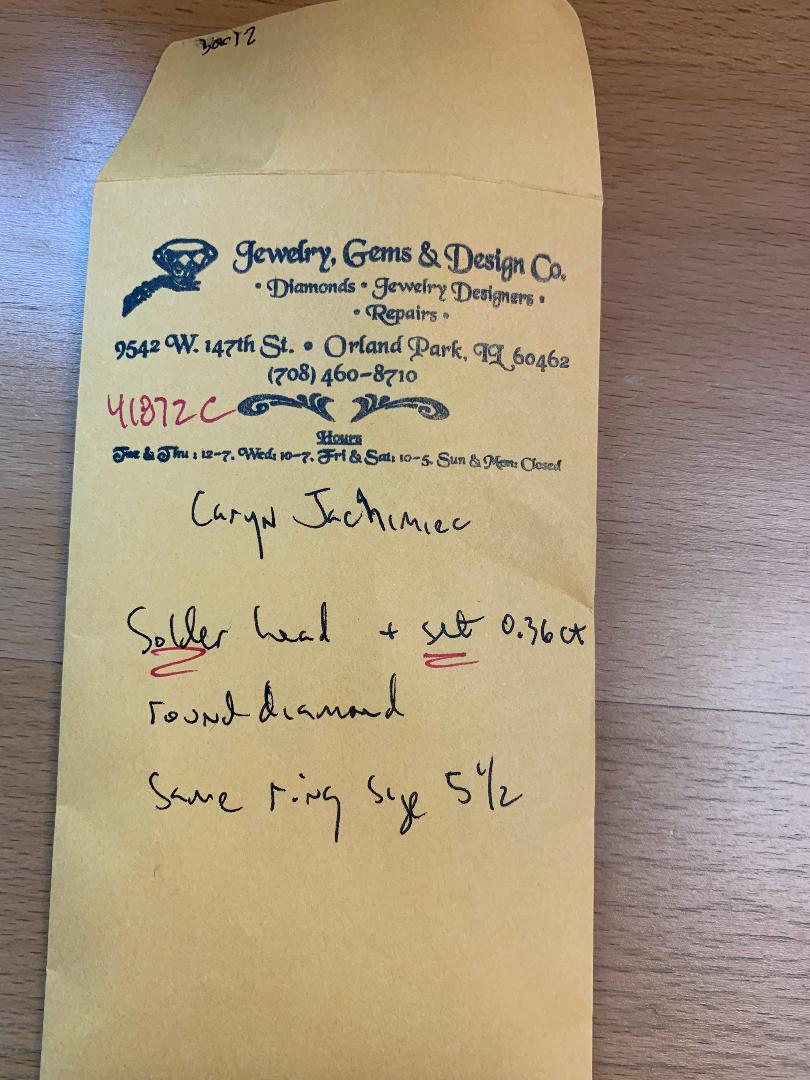 Jewelry, Gems & Design Co.
• Diamonds • Jewelry Designers •
• Repairs •
9542 W. 147th St. • Orland Park, IL 60462
(708) 460-8710
41872C
Hours
Tue & Thu : 12-7, Wed: 10-7, Fri & Sat: 10-5, Sun & Mon: Closed
Caryn Jachimiec
Solder head + set 0.36 ct
round diamond
Same ring size 5 1/2